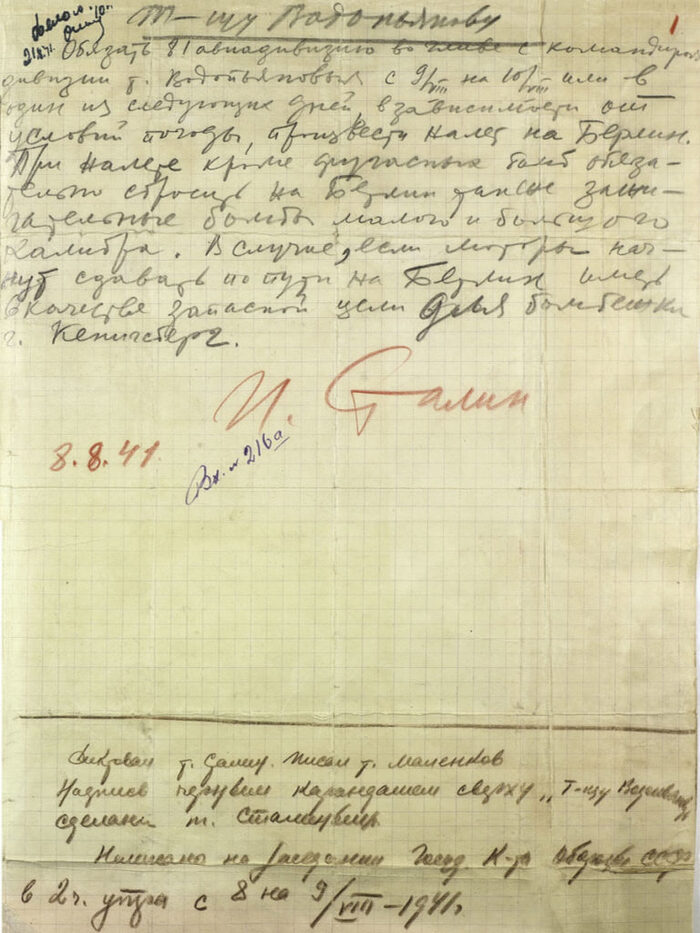 Т-щу Водопьянову
1
Обязать 81 авиадивизию во главе с командиром
дивизии т. Водопьяновым с 9/VIII на 10/VIII или в
один из следующих дней в зависимости от
условий погоды, произвести налет на Берлин.
При налете кроме фугасных бомб обяза-
тельно сбросить на Берлин также зажи-
гательные бомбы малого и большого
калибра. В случае, если моторы нач-
нут сдавать по пути на Берлин иметь
в качестве запасной цели для бомбежки
г. Кенигсберг.
И. Сталин
8.8.41
Вх. № 216а
Диктовал т. Сталин. Писал т. Маленков
Надпись черным карандашем сверху „Т-щу Водопьянову
сделана т. Сталиным
Написано на заседании Госуд. К-та Обороны СССР
в 2 ч. утра с 8 на 9/VIII – 1941 г.